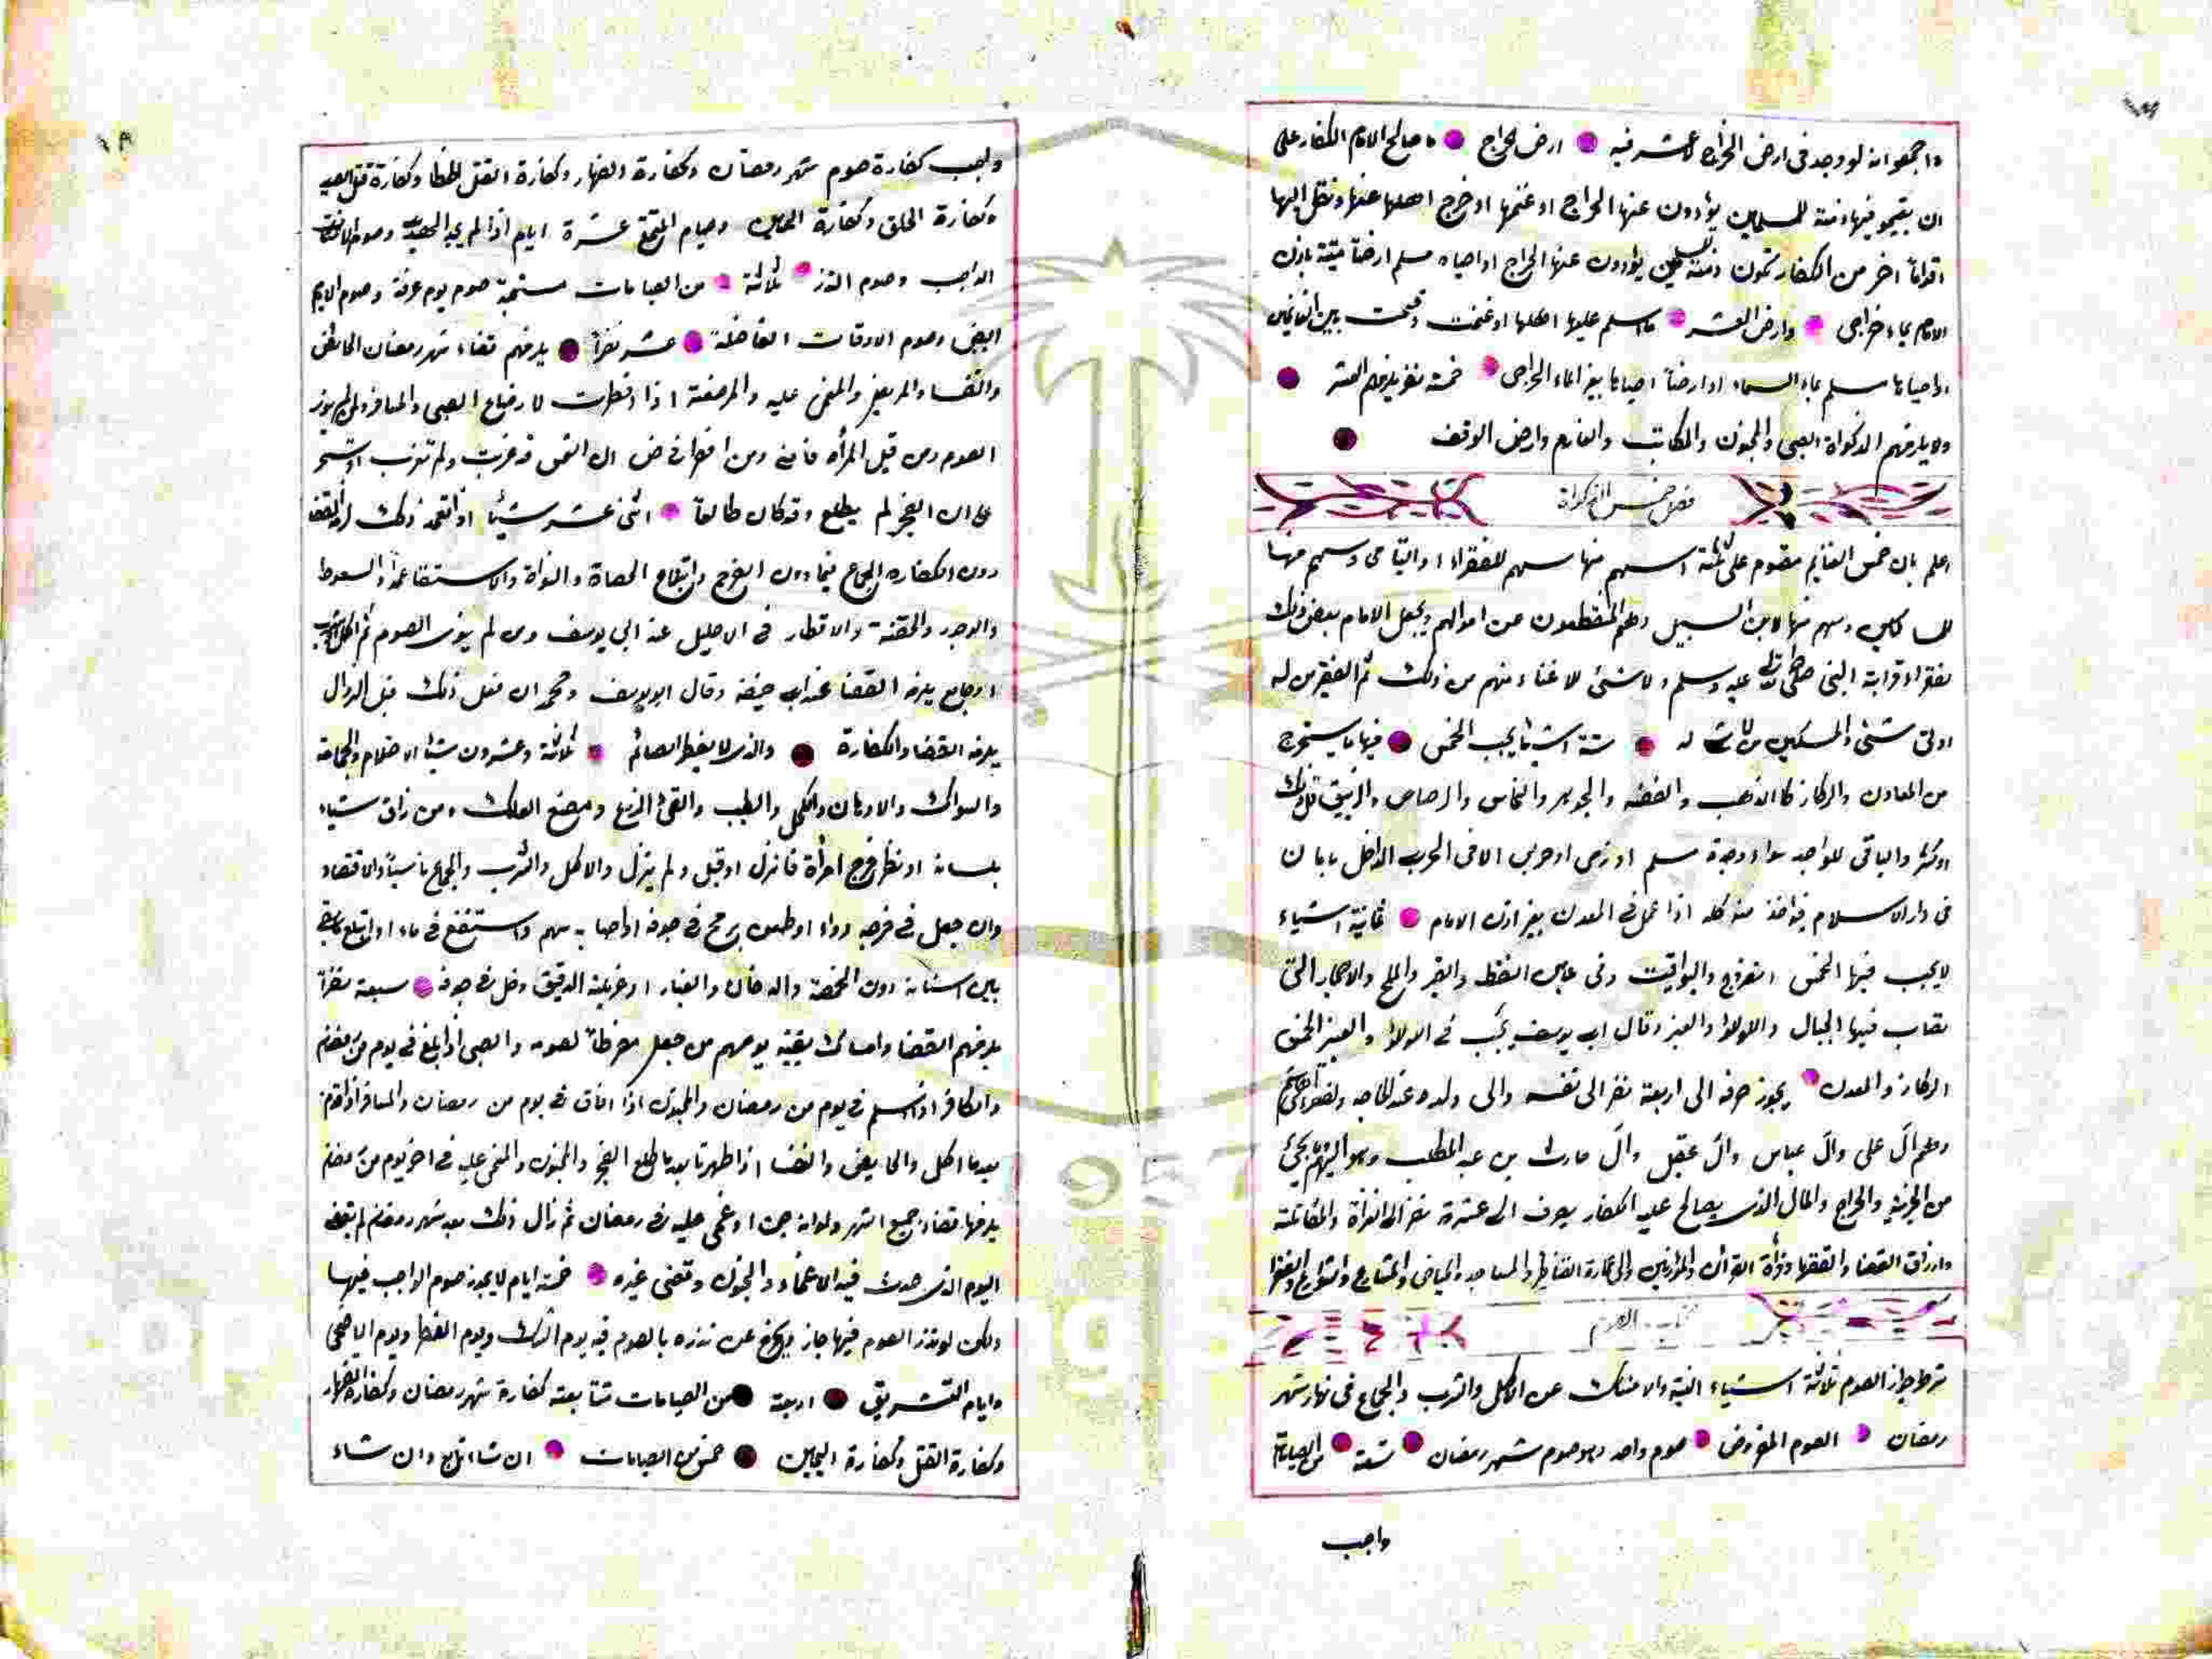 واجمعوا انه لو وجد فى ارض الخراج لا عشر فيه ارض الخراج ما صالح الامام الكفار على
ان يقيموا فيها ذمة للمسلمين يؤدون عنها الخراج او غنمها او خرج اهلها عنها ونقل اليها
اقواما اخر من الكفار تكون ذمة للمسلمين يؤدون عنها الخراج او احياه مسلم ارضا ميتة باذن
الامام بماء خراجى وارض العشر ما اسلم عليها اهلها او غنمت وقسمت بين الغانمين
او احياها مسلم بماء السماء او ارضا احياها بغير الماء الخراجى خمسة نفر يلزمهم العشر
ولا يلزمهم الزكواة الصبى والمجنون والمكاتب والغارم وارض الوقف
فصل خمس
اعلم بان خمس الغنايم مقسوم على ثلثة اسهم منها سهم للفقراء واليتامى وسهم منها
للمساكين وسهم منها لابن السبيل وهم المنقطعون عن اموالهم ويجعل الامام بعض ذلك
لفقراء قرابة النبى صلى الله عليه وسلم ولا شئ لاغنياء منهم من ذلك ثم الفقير من له
ادنى شئى والمسكين من لا شئ له ستة اشياء يجب الخمس فيها ما يستخرج
من المعادن والركاز كالذهب والفضه والجوهر والنحاس والرصاص والزيبق قل ذلك
او كثر والباقى للواجد سواء وجدة مسلم او ذمى او حربى الا فى الحرب الداخل بامان
فى دار الاسلام يؤاخذ منه كله اذا عمل فى المعدن بغير اذن الامام ثمانية اشياء
لا يجب فيها الخمس الفيروزج واليواقيت وفى عين النفط والقير والملح والاحجار التى
تصاب فيها الجبال واللولؤ والعنبر وقال ابى يوسف يجب فى اللولؤ والعنبر الخمس
الركاز والمعدن يجوز صرفه الى اربعة نفر الى نفسه والى ولده عند الحاجه
وهم آل على وآل عباس وآل عقيل وآل حارث بن عبد المطلب ومواليهم
من الجزية والخراج والمال الذى يصالح عليه الكفار يصرف الى عشرة نفر الى الغزاة والمقاتلة
وارزاق القضا والفقها وقراة القرأن والمؤذنين والى عمارة القناطر والمساجد والحياض
الصوم
شرط جواز الصوم ثلاثة اشياء النية والامساك عن الاكل والشرب والجماع فى نهار شهر
رمضان الصوم المفروض صوم واحد وهو صوم شهر رمضان تسعة من الصيامات
واجب
واجب كفارة صوم شهر رمضان وكفارة والظهار وكفارة القتل الخطا وكفارة قتل الصيد
وكفارة الحلق وكفارة اليمين وصيام المتمتع عشرة ايام اذا لم يجد الهدى وصوم الاعتكاف
الواجب وصوم النذر ثلاثة من الصيامات مستحبة صوم يوم عرفة وصوم الايام
البيض وصوم الاوقات الفاضلة عشر نفرا يلزمهم قضاء شهر رمضان الحائض
والنفساء والمريض والمغمى عليه والمرضعة اذا افطرت لارضاع الصبى والمسافر ولمن لم ينو
الصوم ومن قبل المرأة فامنى ومن افطر على ان الشمس قد غربت ولم تغرب او تسحر
على ان الفجر لم يطلع وقد كان طالعا اثنى عشر شيأ اذا تعمد ذلك لزمه القضا
دون الكفاره الجماع فيما دون الفرج وابتلاع الحصاة والنواة والاستقاء عمدا والسعوط
والوجور والحقنة والاقطار فى الاحليل عند ابى يوسف ومن لم ينوى الصوم ثم اكل
او جامع يلزمه القضا عند ابى حنيفه وقال ابو يوسف ومحمد ان فعل ذلك قبل الزوال
يلزمه القضا والكفارة والذى لا يفطر الصائم ثلاثة وعشرون شيئا الاحتلام والحجامة
والسواك والادهان والكحل والطيب والقئ الذريع ومضغ العلك ومن ذاق شياء
بلسانه او نظر فرج امرأة فانزل او قبل ولم ينزل والاكل والشرب والجماع ناسيا والاقتصاد
وان جعل فى فرجه دواء او طعن برمح فى جوفه او اصابه سهم واستنقع فى ماء او ابتلع ما بقى
بين اسنانه دون الحمصة والدخان والغبار او غربلة الدقيق دخل فى جوفه سبعة نفرا
يلزمهم القضا وامساك بقية يومهم من جعل مفرطا لصومه والصبى اذا بلغ فى يوم من رمضان
والكافر اذا اسلم فى يوم من رمضان والمجنون اذا افاق فى يوم من رمضان والمسافر اذا قدم
بعدما اكل والحايض والنفسا اذا طهرتا بعد ما طلع الفجر والمجنون والمغمى عليه فى اخر يوم من رمضان
يلزمها قضاء جميع الشهر ولو انه جن او غمى عليه فى رمضان ثم زال ذلك بعد شهر رمضان لم يقض
اليوم الذى حدث فيه الاغماء والجنون وقضى غيره خمسة ايام لا يجوز صوم الواجب فيها
ولكن لو نذر الصوم فيها جاز ويخرج عن نذره بالصوم فيه يوم الشك ويوم الفطر ويوم الاضحى
وايام التشريق اربعة من الصيامات متتابعة كفارة شهر رمضان وكفارة الظهار
وكفارة القتل وكفارة اليمين خمس من الصيامات ان شا تابع وان شاء